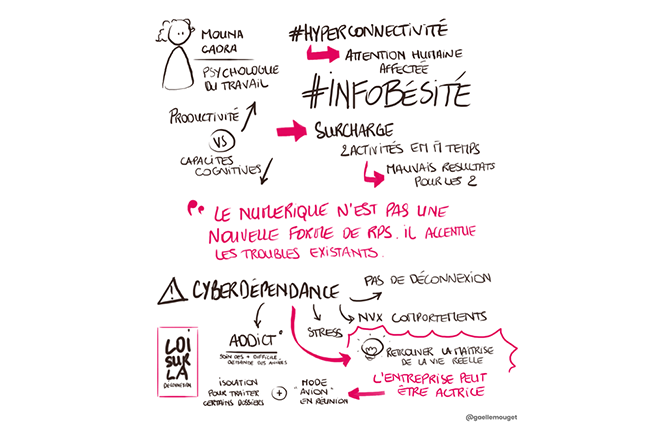 MOUNA
GAORA
PSYCHOLOGUE
DU TRAVAIL
#HYPERCONNECTIVITÉ
ATTENTION HUMAINE
AFFECTÉE
#INFOBÉSITÉ
PRODUCTIVITÉ
VS
CAPACITES
COGNITIVES
SURCHARGE
2 ACTIVITÉS EM M TEMPS
MAUVAIS RESULTATS
POUR LES 2
LE NUMERIQUE N'EST PAS UNE
NOUVELLE FORME DE RPS. IL ACCENTUE
LES TROUBLES EXISTANTS.
⚠ CYBERDÉPENDANCE
PAS DE DÉCONNEXION
NVX COMPORTEMENTS
STRESS
ADDICT°
SOIN DES + DIFFICILE,
DEMANDE DES ANNÉES
RETROUVER LA MAITRISE
DE LA VIE REELLE
LOI
SUR
LA
DÉCONNEXION
ISOLATION
POUR TRAITER
CERTAINS DOSSIERS
+
MODE
"AVION"
EN RÉUNION
L'ENTREPRISE PEUT
ÊTRE ACTRICE
@gaellemouget